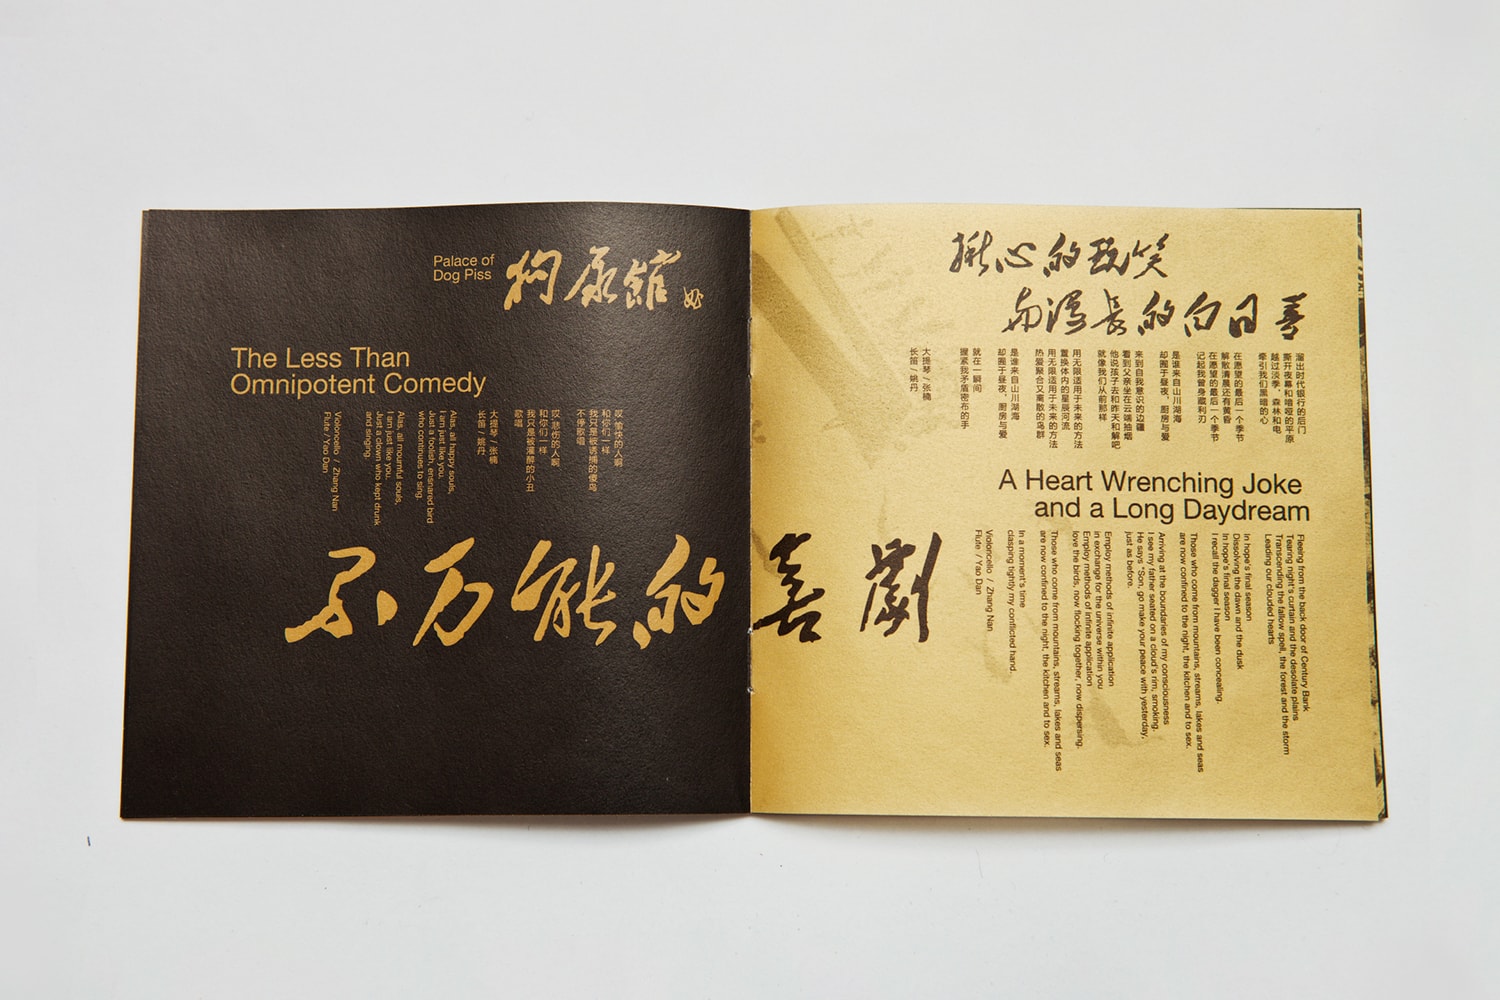 Palace of
Dog Piss
狗尿館
The Less Than
Omnipotent Comedy
哎愉快的人啊
和你们一样
我只是被诱捕的傻鸟
不停歌唱
哎悲伤的人啊
和你们一样
我只是被灌醉的小丑
歌唱
大提琴 / 张楠
长笛 / 姚丹
Alas, all happy souls,
I am just like you.
Just a foolish, ensnared bird
who continues to sing.
Alas, all mournful souls,
I am just like you.
Just a clown who kept drunk
and singing.
Violoncello / Zhang Nan
Flute / Yao Dan
不万能的喜劇
揪心的玩笑
与漫長的白日夢
溜出时代银行的后门
撕开夜幕和喑哑的平原
越过淡季、森林和电
牵引我们黑暗的心
在愿望的最后一个季节
解散清晨还有黄昏
在愿望的最后一个季节
记起我曾身藏利刃
是谁来自山川湖海
却囿于昼夜、厨房与爱
来到自我意识的边疆
看到父亲坐在云端抽烟
他说孩子去和昨天和解吧
就像我们从前那样
用无限适用于未来的方法
置换体内的星辰河流
用无限适用于未来的方法
热爱聚合又离散的鸟群
是谁来自山川湖海
却囿于昼夜、厨房与爱
就在一瞬间
握紧我矛盾密布的手
大提琴 / 张楠
长笛 / 姚丹
A Heart Wrenching Joke
and a Long Daydream
Fleeing from the back door of Century Bank
Tearing night's curtain and the desolate plains
Transcending the fallow spell, the forest and the storm
Leading our clouded hearts
In hope's final season
Dissolving the dawn and the dusk
In hope's final season
I recall the dagger I have been concealing.
Those who come from mountains, streams, lakes and seas
are now confined to the night, the kitchen and to sex.
Arriving at the boundaries of my consciousness
I see my father seated on a cloud's rim, smoking.
He says "Son, go make your peace with yesterday,
just as before.
Employ methods of infinite application
in exchange for the universe within you
Employ methods of infinite application
love the birds, now flocking together, now dispersing.
Those who come from mountains, streams, lakes and seas
are now confined to the night, the kitchen and to sex.
In a moment's time
clasping tightly my conflicted hand.
Violoncello / Zhang Nan
Flute / Yao Dan